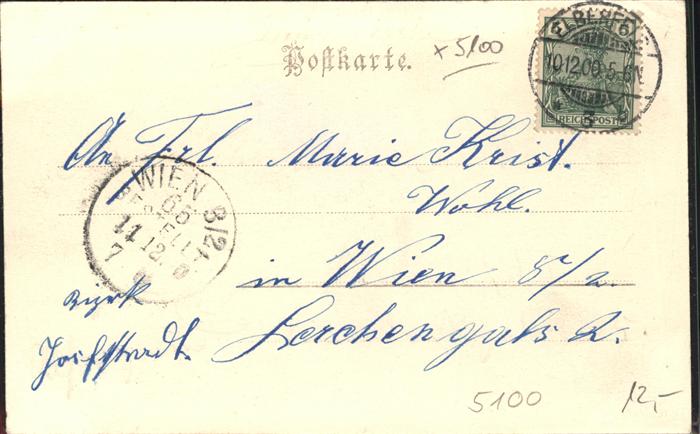 Postkarte.
x 5100
ELBERFELD
10.12.00.5-6N.
REICHSPOST
An Frl. Marie Krist.
Wohl.
WIEN 8/2
65
BESTELLT
11.12.0
7
in Wien 8/2.
Bezirk
Josefstadt.
Lerchengals 2.
5100
12,-